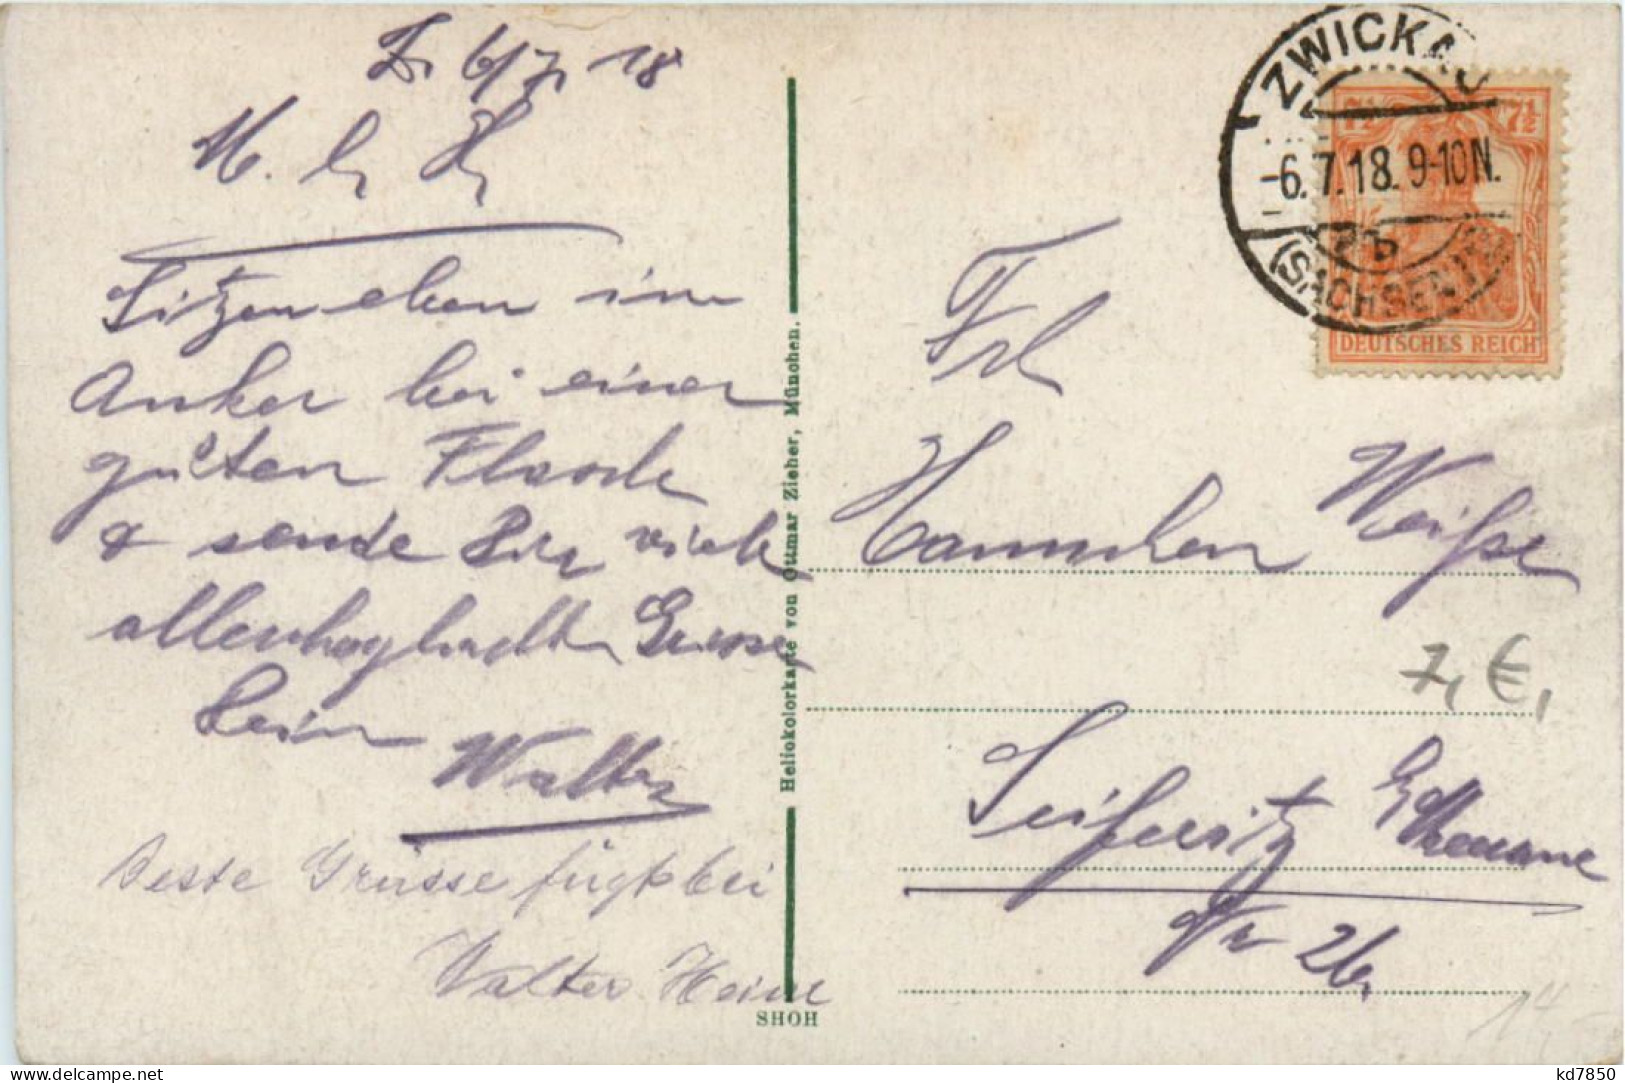 Z. 6/7. 18
M. l. H.
Sitzen eben im
Anker bei einer
guten Flasche
& sende Dir viele
allerherzlichste Grüsse
Dein
Walter
Beste Grüsse fügt bei
Walter Heine
Heliokolorkarte von Ottmar Zieher, München.
SHOH
ZWICKAU
-6.7.18. 9-10N.
(SACHSEN)
7½ 7½
DEUTSCHES REICH
Frl
Hannchen Weiße
7,€,
Seiferitz
Nr 26.
14
kd7850